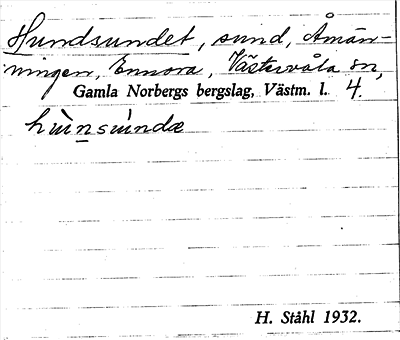 Hundsundet, sund, Åmän-
ningen, Ennora, Västervåla sn,
Gamla Norbergs bergslag, Västm. l. 4.
hùnsùndæ
H. Ståhl 1932.